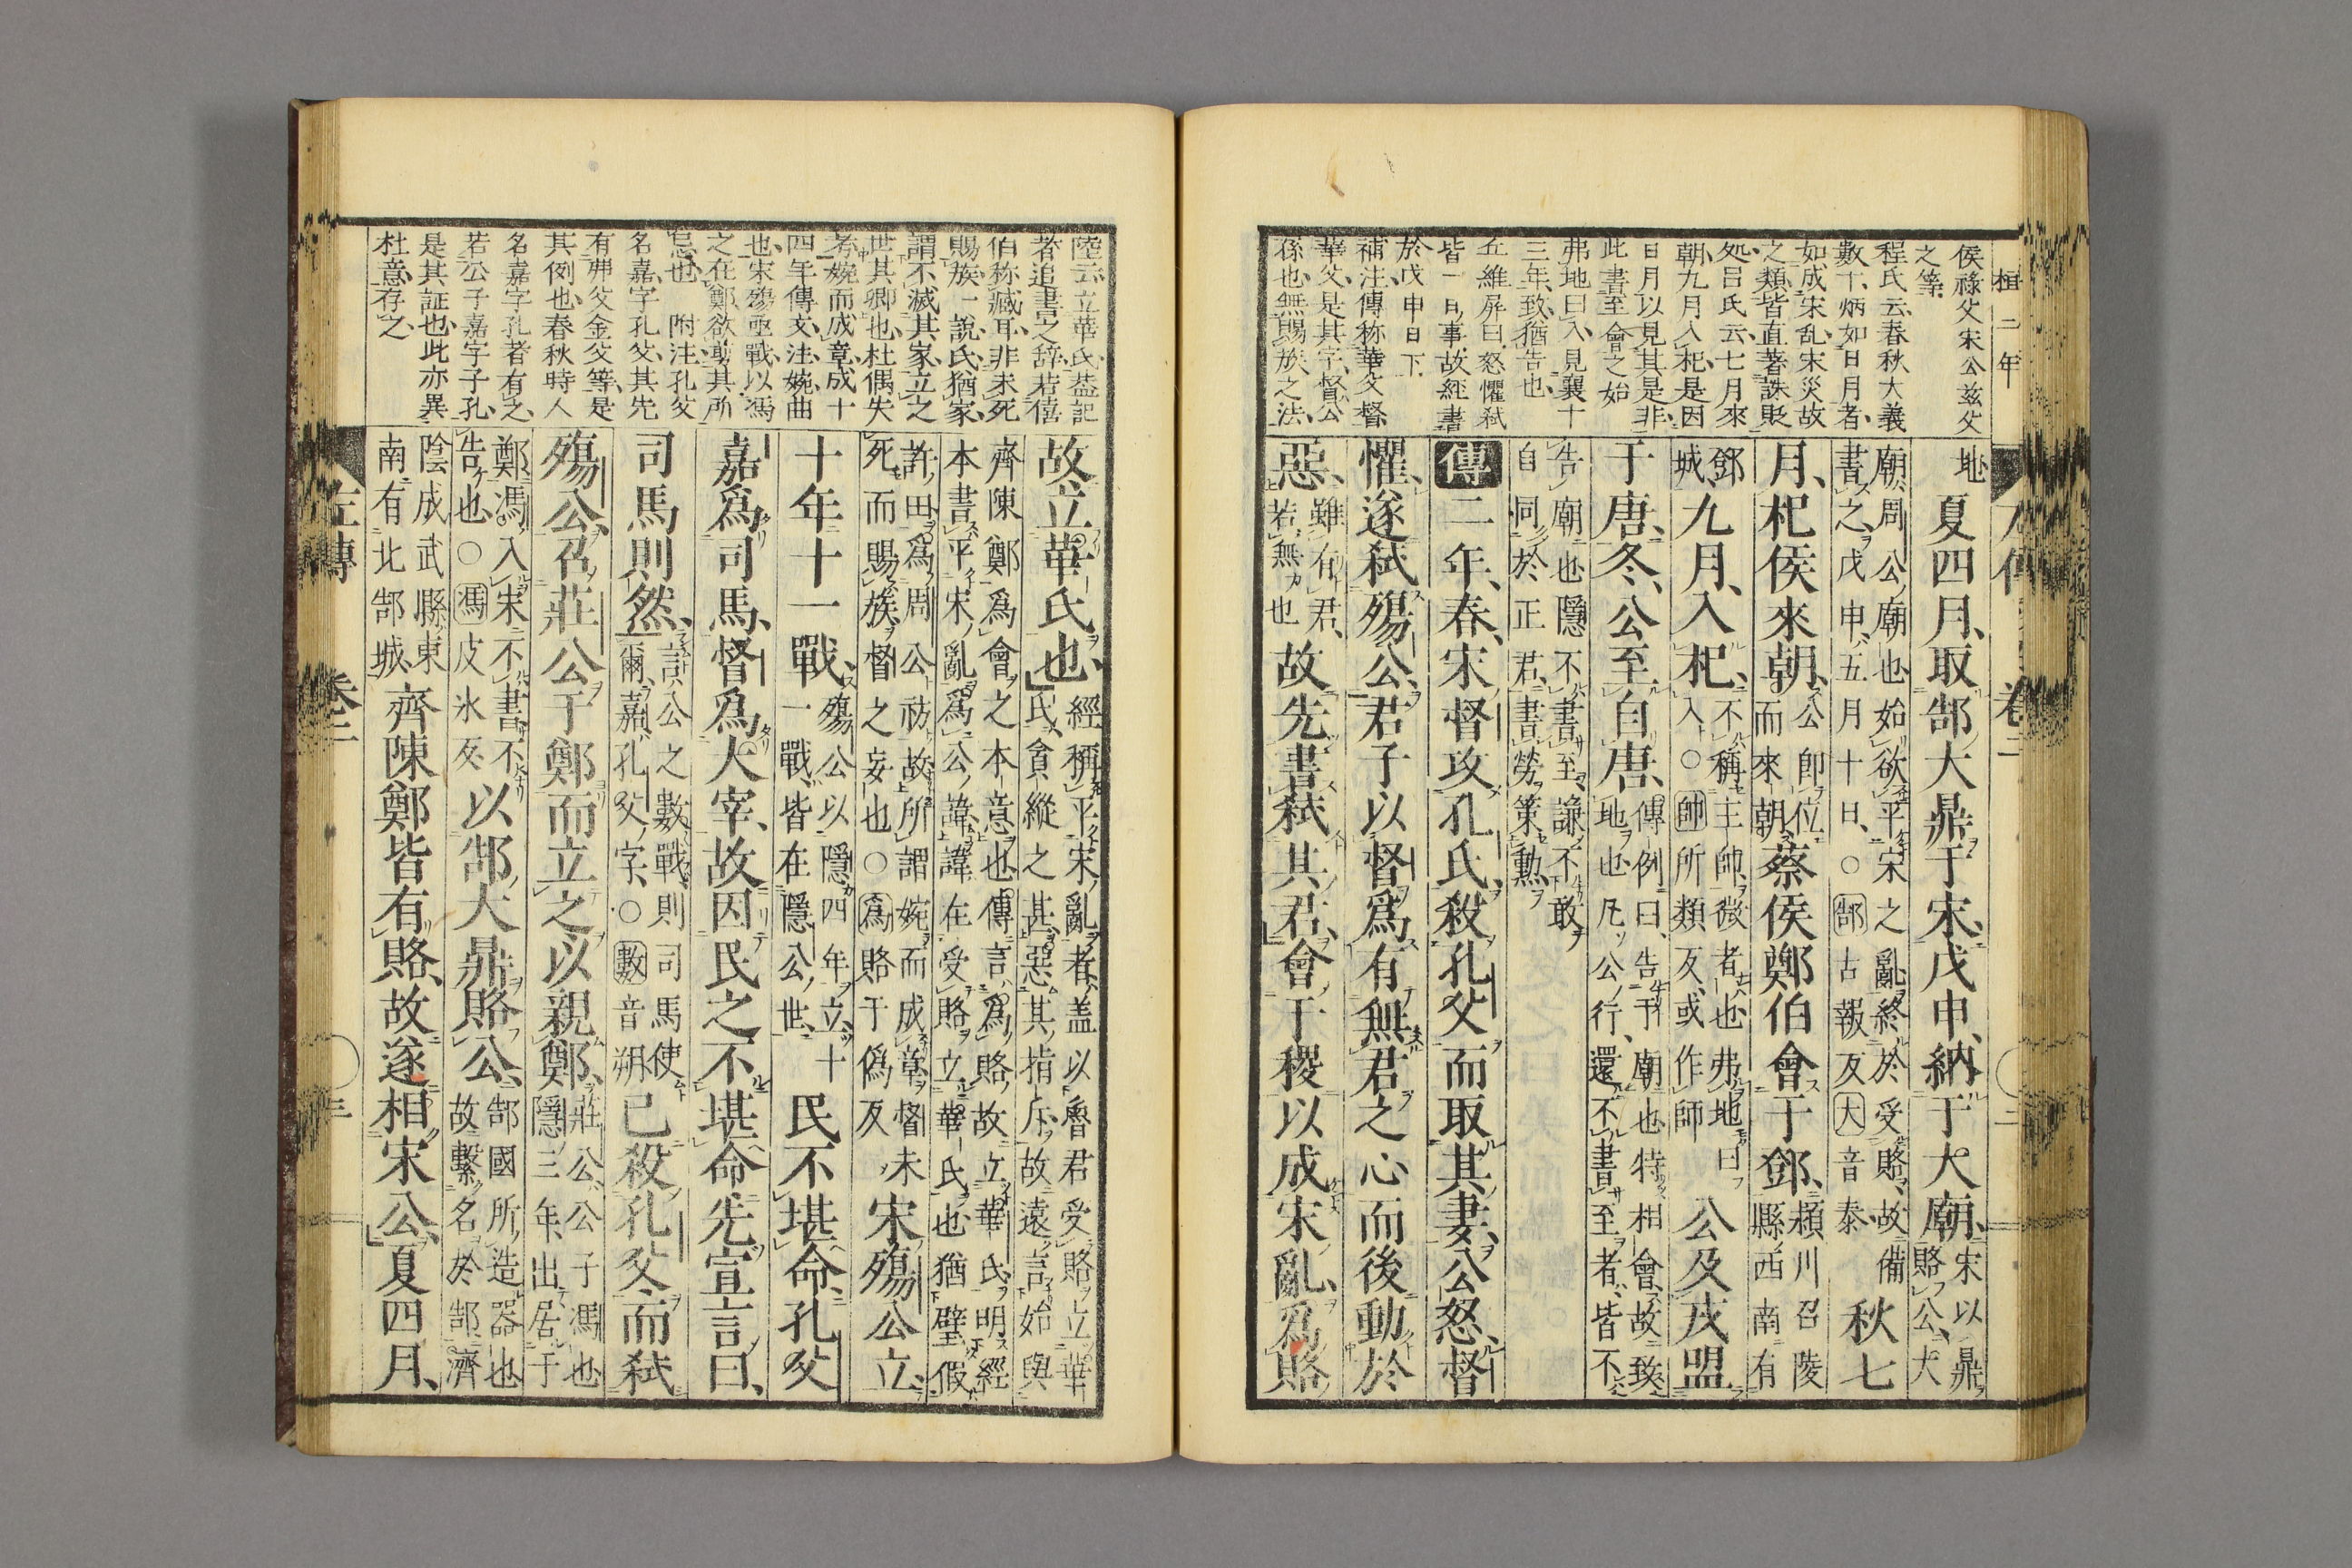 桓二年
侯祿父宋公玆父
之等
程氏云春秋大義
數十炳如日月者
如成宋乱宋災故
之類皆直著誅貶
処呂氏云七月來
朝九月入杞是因
日月以見其是非
此書至會之始
弗地曰入見襄十
三年致猶告也
丘維屏曰怒懼弑
皆一日事故經書
於戊申日下
補注傳称華父督
華父是其字督公
孫也無賜族之法
地夏四月、取郜大鼎于宋、戊申、納于大廟、宋以鼎賂公、大
廟、周公廟也始欲平宋之亂終於受賂、故備書之、戊申、五月十日、○郜古報反大音泰秋七
月、杞侯來朝、公即位而來朝蔡侯鄭伯會于鄧、潁川召陵縣西南有
鄧城九月、入杞、不稱主帥微者也弗地曰入○帥所類反、或作師公及戎盟
于唐、冬、公至自唐、傳例曰、告于廟也特相會、故致地也凡公行、還不書至者、皆不
告廟也隱不書至、謙不敢自同於正君、書勞策勳
傳二年、春、宋督攻孔氏、殺孔父而取其妻、公怒、督
懼、遂弑殤公、君子以督爲有無君之心而後動於
惡、雖有君、若無也故先書弑其君、會于稷以成宋亂、爲賂
左傳 卷二 二
陸云立華氏葢記
者追書之辞若僖
伯称臧耳非未死
賜族一說氏猶家
謂不滅其家立之
世其卿也杜偶失
考婉而成章成十
四年傳文注婉曲
也宋殤亟戰以馮
之在鄭欲剪其所
忌也 附注孔父
名嘉字孔父其先
有弗父金父等是
其例也春秋時人
名嘉字孔者有之
若公子嘉字子孔
是其証也此亦異
杜意存之
故、立華氏也、經稱平宋亂者、蓋以魯君受賂立華氏、貪縱之甚惡其指斥故遠言始與
齊陳鄭爲會之本意也傳言爲賂故立華氏明經本書平宋亂爲公諱諱在受賂立華氏也猶璧假
許田爲周公祊故所謂婉而成章督未死而賜族督之妄也○爲賂于僞反宋殤公立、
十年十一戰、殤公以隱四年立、十一戰、皆在隱公世、民不堪命、孔父
嘉爲司馬、督爲大宰、故因民之不堪命、先宣言曰、
司馬則然、言公之數戰、則司馬使爾、嘉孔父字、○數音朔已殺孔父而弑
殤公、召莊公于鄭而立之以親鄭、莊公、公子馮也隱三年、出居于
鄭、馮入宋不書不告也、○馮皮氷反以郜大鼎賂公、郜國所造器也故繫名於郜濟
陰成武縣東南有北郜城齊陳鄭皆有賂、故遂相宋公、夏四月、
左傳 卷二 三